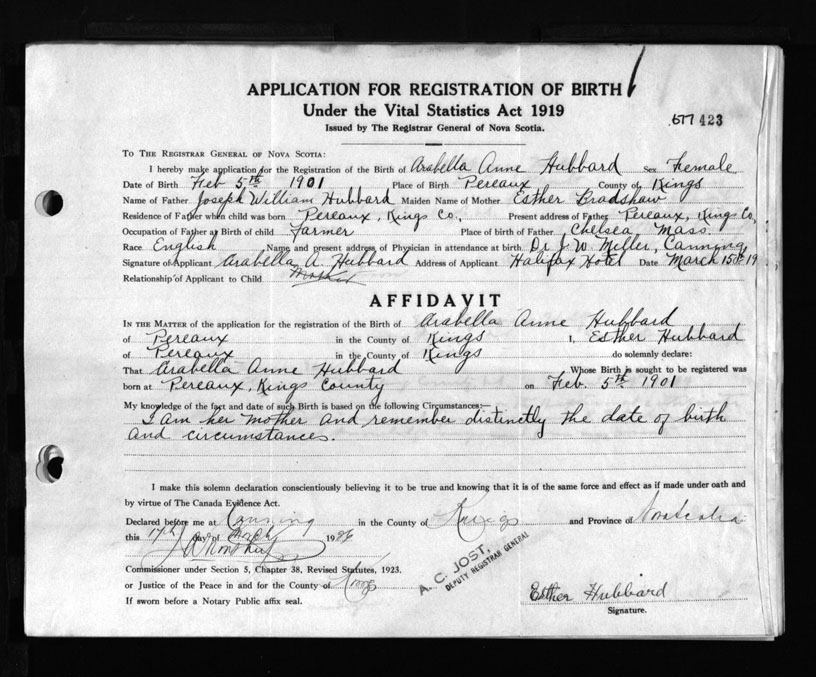 APPLICATION FOR REGISTRATION OF BIRTH
Under the Vital Statistics Act 1919
Issued by The Registrar General of Nova Scotia.
577 423
To The Registrar General of Nova Scotia:
I hereby make application for the Registration of the Birth of Arabella Anne Hubbard Sex Female
Date of Birth Feb 5th 1901 Place of Birth Pereaux County of Kings
Name of Father Joseph William Hubbard Maiden Name of Mother Esther Bradshaw
Residence of Father when child was born Pereaux, Kings Co., Present address of Father Pereaux, Kings Co,
Occupation of Father at Birth of child Farmer Place of birth of Father Chelsea Mass.
Race English Name and present address of Physician in attendance at birth Dr J. W. Miller, Canning
Signature of Applicant Arabella A. Hubbard Address of Applicant Halifax Hotel Date March 15th 19
Relationship of Applicant to Child Mother
AFFIDAVIT
In the Matter of the application for the registration of the Birth of Arabella Anne Hubbard
of Pereaux in the County of Kings I, Esther Hubbard
of Pereaux in the County of Kings do solemnly declare:
That Arabella Anne Hubbard Whose Birth is sought to be registered was
born at Pereaux, Kings County on Feb. 5th 1901
My knowledge of the fact and date of such Birth is based on the following Circumstances:—
I am her mother and remember distinctly the date of birth
and circumstances.
I make this solemn declaration conscientiously believing it to be true and knowing that it is of the same force and effect as if made under oath and
by virtue of The Canada Evidence Act.
Declared before me at Canning in the County of Kings and Province of Nova Scotia
this 17th day of March 19
Commissioner under Section 5, Chapter 38, Revised Statutes, 1923.
or Justice of the Peace in and for the County of Kings
If sworn before a Notary Public affix seal.
A. C. JOST,
DEPUTY REGISTRAR GENERAL
Esther Hubbard
Signature.